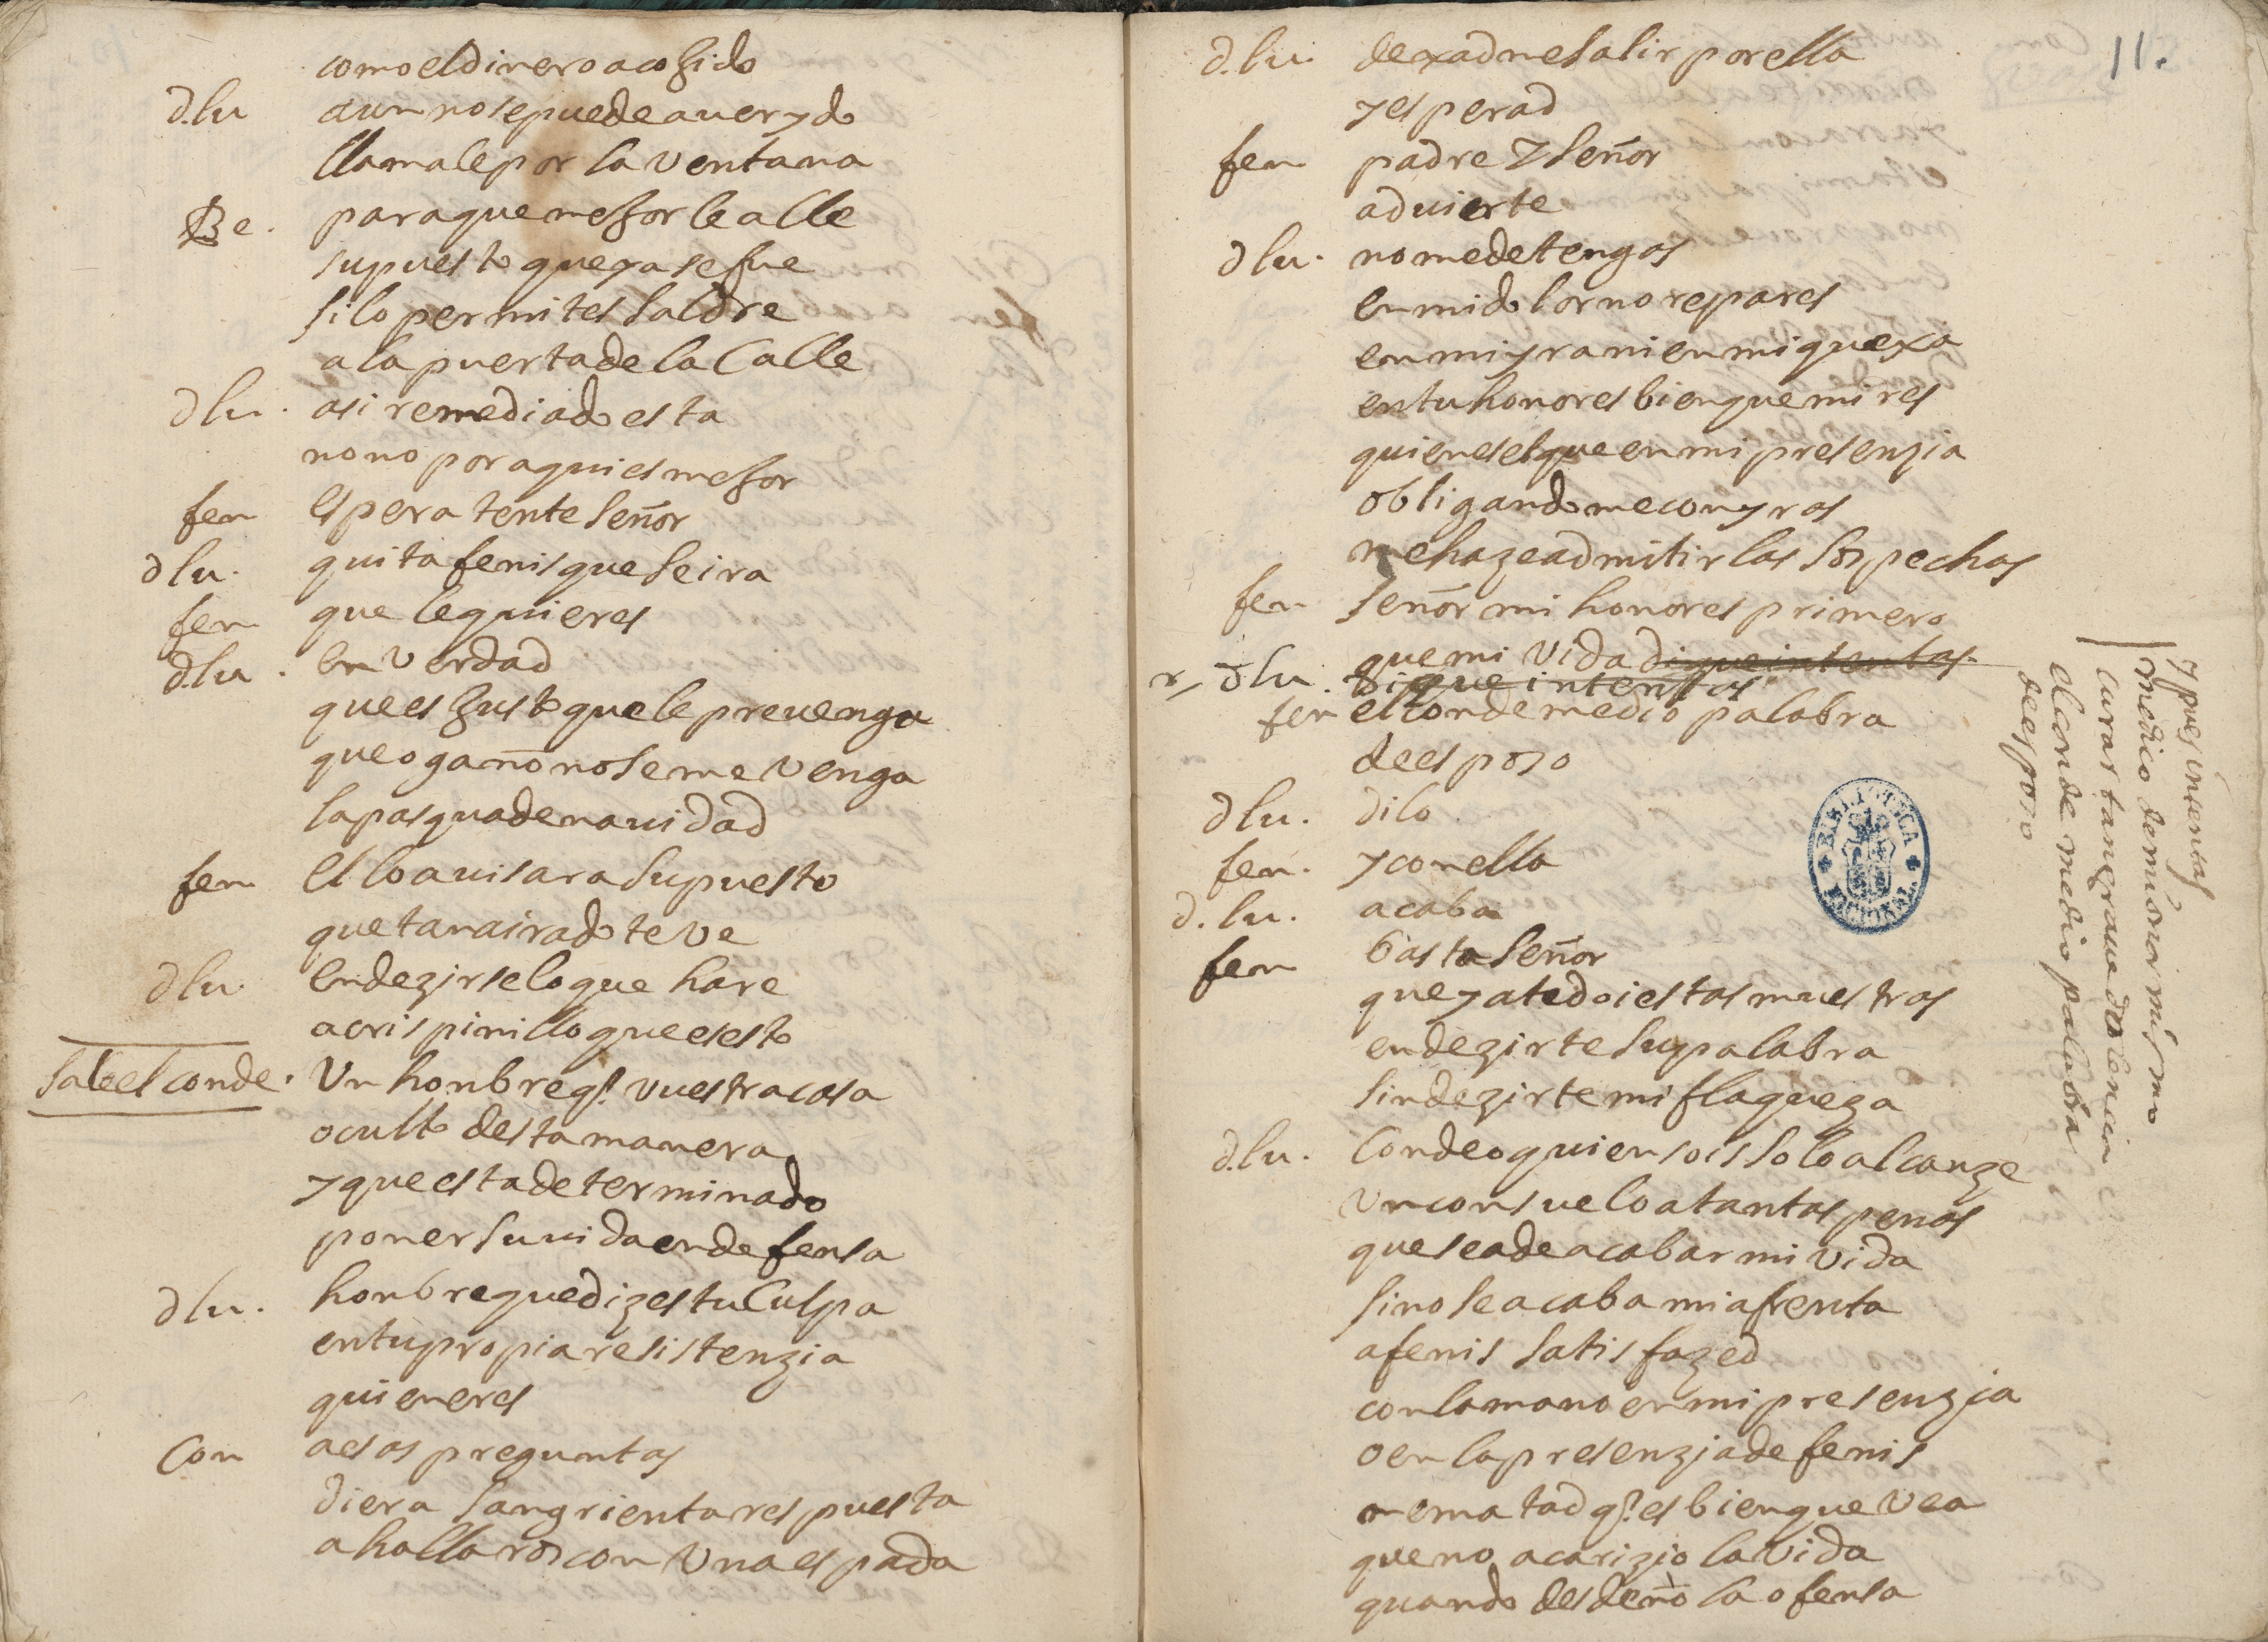 como el dinero a cogido
d.lu aun no se puede auer ydo
llamale por la ventana
Be. para que mejor le alle
supuesto que ya se fue
si lo permites saldre
a la puerta de la calle
d lu. asi remediado esta
no no por aqui es mejor
fen espera tente señor
d lu. quita fenis que se ira
fen que le quieres
d.lu. en verdad
que es justo que le prevenga
que ogaño no se me venga
la pasqua de nauidad
fen el lo auisara supuesto
que tan airado te ve
d lu. en dezirselo que hare
a crispinillo que es esto
sale el conde. Un honbre q̃. vuestra casa
oculto desta manera
y que esta determinado
poner su uida en defensa
d lu. honbre que dizes tu culpa
en tu propia resistenzia
quien eres
Con a esas preguntas
diera sangrienta respuesta
a hallaros con una espada
11.
d.lu. dexadme salir por ella
y esperad
fen padre y señor
aduierte
d lu. no me detengas
en mi dolor no repares
en mi yra ni en mi quexa
en tu honor es bien que mires
quien es el que en mi presenzia
obligandome con yras
me haze admitir las sospechas
fen señor mi honor es primero
que mi vida di que intentas
d lu. di que intentas
fen el conde me dio palabra
de esposo
d lu. dilo
fen. y con ella
d. lu. acaba
fen basta señor
que ya te doi estas muestras
en dezirte su palabra
sin dezirte mi flaqueza
d.lu. Conde o quien sois solo alcanze
un consuelo a tantas penas
que sea de acabar mi vida
si no se acaba mi afrenta
a fenis satisfazed
con la mano en mi presenzia
o en la presenzia de fenis
me matad q̃. es bien que vea
que no acarizio la vida
quando desdeño la ofensa
y pues intentas
medico de mi onor mismo
curar tan graue dolencia
el conde me dio palabra
de esposo
BIBLIOTECA NACIONAL